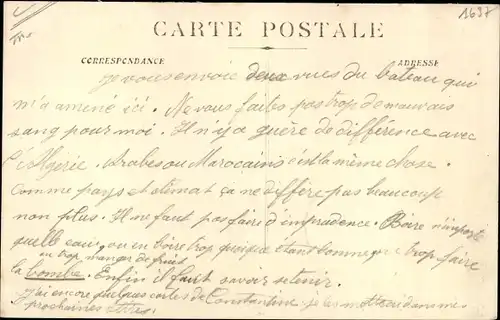 13697
CARTE POSTALE
CORRESPONDANCE
ADRESSE
je vous envoie deux vues du bateau qui
m'a amené ici. Ne vous faites pas trop de mauvais
sang pour moi. Il n'y a guère de différence avec
l'Algérie. Arabes ou Marocains c'est la même chose.
Comme pays et climat ça ne diffère pas beaucoup
non plus. Il ne faut pas faire d'imprudence. Boire n'importe
quelle eau, ou en boire trop quoique étant bonne, trop faire
ou trop manger de fruits
la bombe. Enfin il faut savoir se tenir.
J'ai encore quelques cartes de Constantine je les mettrai dans mes
prochaines